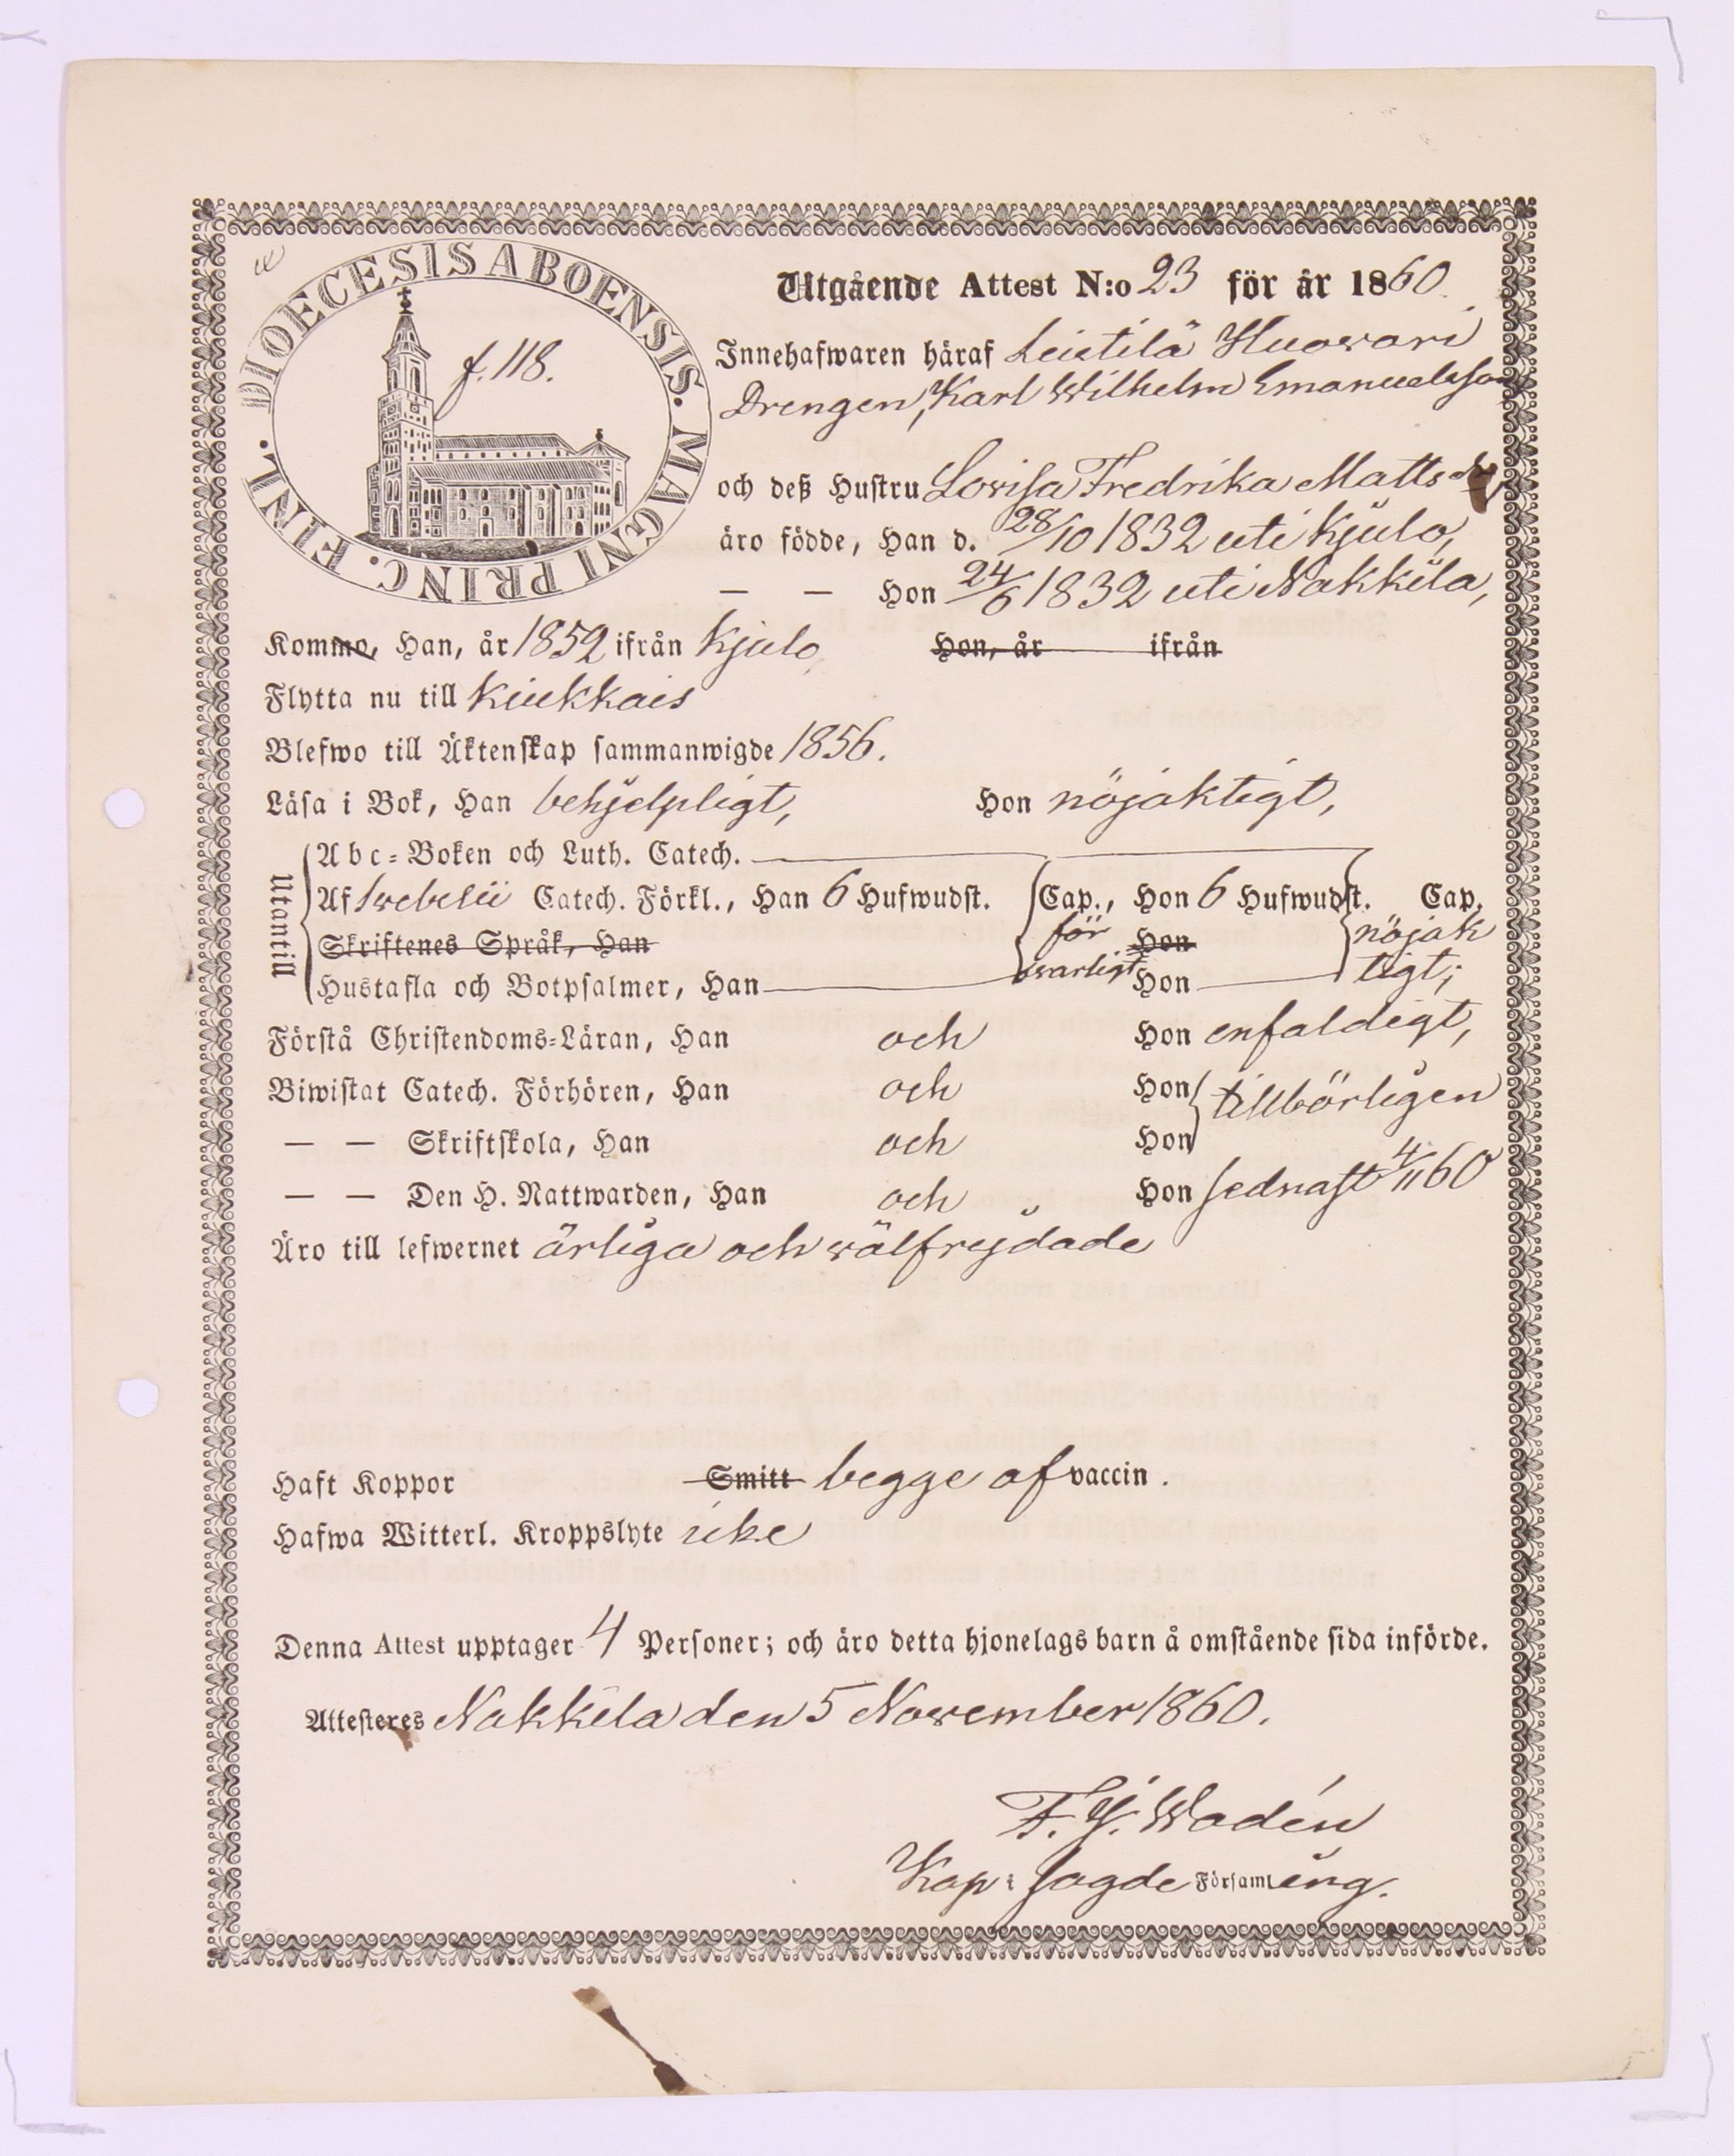 DIOECESIS ABOENSIS. MAGNI PRINC. FINL.
f. 118.
Utgående Attest N:o 23 för år 1860.
Innehafwaren häraf Leistilä Huovari
Drengen, Karl Wilhelm Emanuelsson
och deß Hustru Lovisa Fredrika Mattsdr
äro födde, Han d. 28/10 1832 uti Kjulo,
— — Hon 24/6 1832 uti Nakkila,
Kommo, Han, år 1852 ifrån Kjulo, Hon, år ifrån
Flytta nu till Kiukkais
Blefwo till Äktenskap sammanwigde 1856.
Läsa i Bok, Han behjelpligt, Hon nöjaktigt,
Utantill
Abc-Boken och Luth. Catech.
Af Svebelii Catech. Förkl., Han 6 Hufwudst. Cap., Hon 6 Hufwudst. Cap.
Skriftenes Språk, Han för Hon nöjak
Hustafla och Botpsalmer, Han svarligt Hon tigt;
Förstå Christendoms-Läran, Han och Hon enfaldigt,
Biwistat Catech. Förhören, Han och Hon tillbörligen
— — Skriftskola, Han och Hon
— — Den H. Nattwarden, Han och Hon sednast 4/11 60
Äro till lefwernet ärliga och välfrejdade
Haft Koppor Smitt begge af vaccin.
Hafwa Witterl. Kroppslyte icke
Denna Attest upptager 4 Personer; och äro detta hjonelags barn å omstående sida införde.
Attesteres Nakkila den 5 November 1860.
F. J. Wadén
Kap: i sagde Församling.